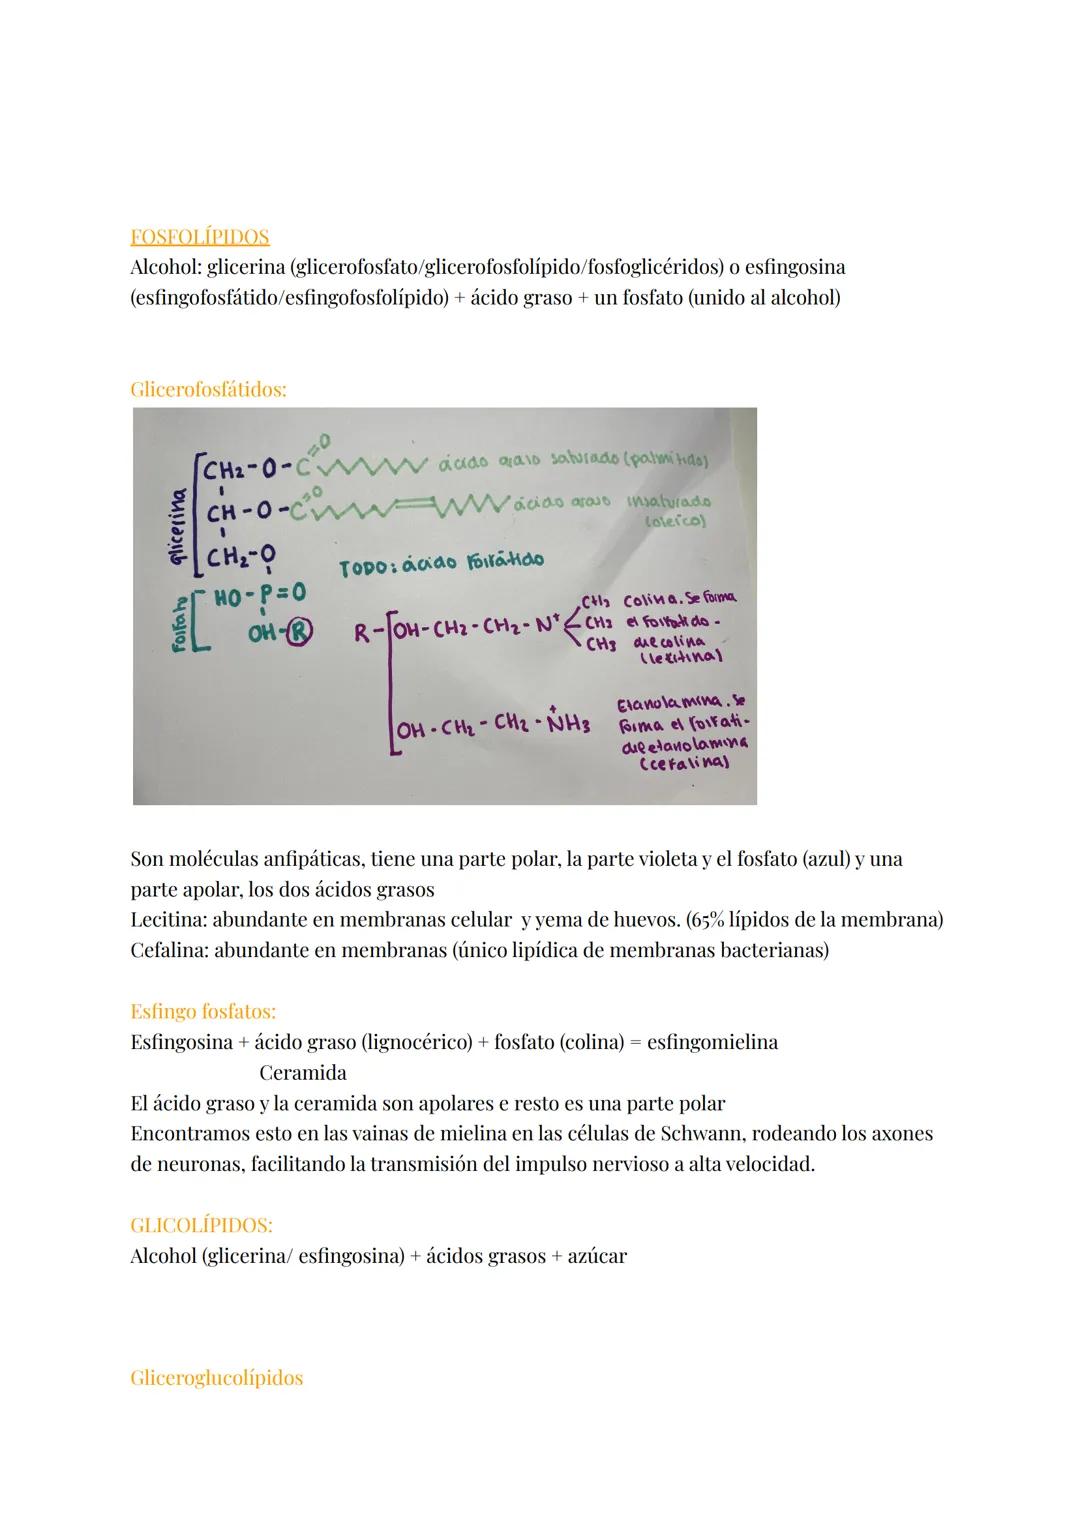 FOSFOLÍPIDOS
Alcohol: glicerina (glicerofosfato/glicerofosfolípido/fosfoglicéridos) o esfingosina
(esfingofosfátido/esfingofosfolípido) + ácido graso + un fosfato (unido al alcohol)
Glicerofosfátidos:
glicerina
CH2-O-C=O ácido graso saturado (palmítido)
CH-O-C=O ácido graso insaturado
(oleico)
CH2-O
TODO: ácido fosfátido
fosfato
HO-P=O
OH-R
R-OH-CH2-CH2-N+ CH3 CH3 CH3
Colina. Se forma
el fosfatido-
dilcolina
(lecitina)
OH-CH2-CH2-N+H3
Etanolamina. Se
forma el fosfati-
diletanolamina
(cefalina)
Son moléculas anfipáticas, tiene una parte polar, la parte violeta y el fosfato (azul) y una
parte apolar, los dos ácidos grasos
Lecitina: abundante en membranas celular y yema de huevos. (65% lípidos de la membrana)
Cefalina: abundante en membranas (único lipídica de membranas bacterianas)
Esfingo fosfatos:
Esfingosina + ácido graso (lignocérico) + fosfato (colina) = esfingomielina
Ceramida
El ácido graso y la ceramida son apolares e resto es una parte polar
Encontramos esto en las vainas de mielina en las células de Schwann, rodeando los axones
de neuronas, facilitando la transmisión del impulso nervioso a alta velocidad.
GLICOLÍPIDOS:
Alcohol (glicerina/ esfingosina) + ácidos grasos + azúcar
Gliceroglucolípidos